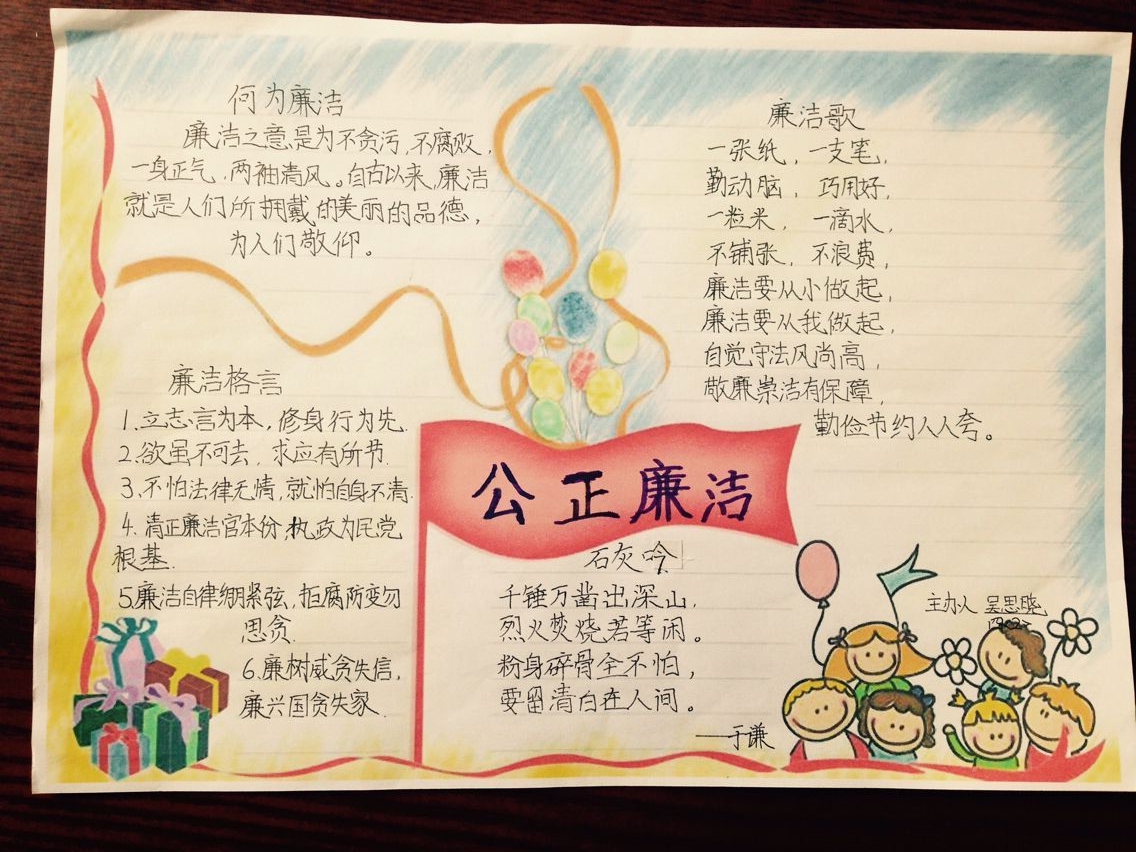 何为廉洁
廉洁之意是为不贪污，不腐败，
一身正气，两袖清风。自古以来，廉洁
就是人们所拥戴的美丽的品德，
为人们敬仰。
廉洁格言
1.立志言为本，修身行为先.
2.欲虽不可去，求应有所节.
3.不怕法律无情，就怕自身不清.
4.清正廉洁官本份，执政为民党
根基.
5.廉洁自律绷紧弦，拒腐防变勿
思贪.
6.廉树威贪失信，
廉兴国贪失家.
公正廉洁
石灰吟
千锤万凿出深山，
烈火焚烧若等闲。
粉身碎骨全不怕，
要留清白在人间。
——于谦
廉洁歌
一张纸，一支笔，
勤动脑，巧用好，
一粒米，一滴水，
不铺张，不浪费，
廉洁要从小做起，
廉洁要从我做起，
自觉守法风尚高，
敬廉崇洁有保障，
勤俭节约人人夸。
主办人 吴思晓